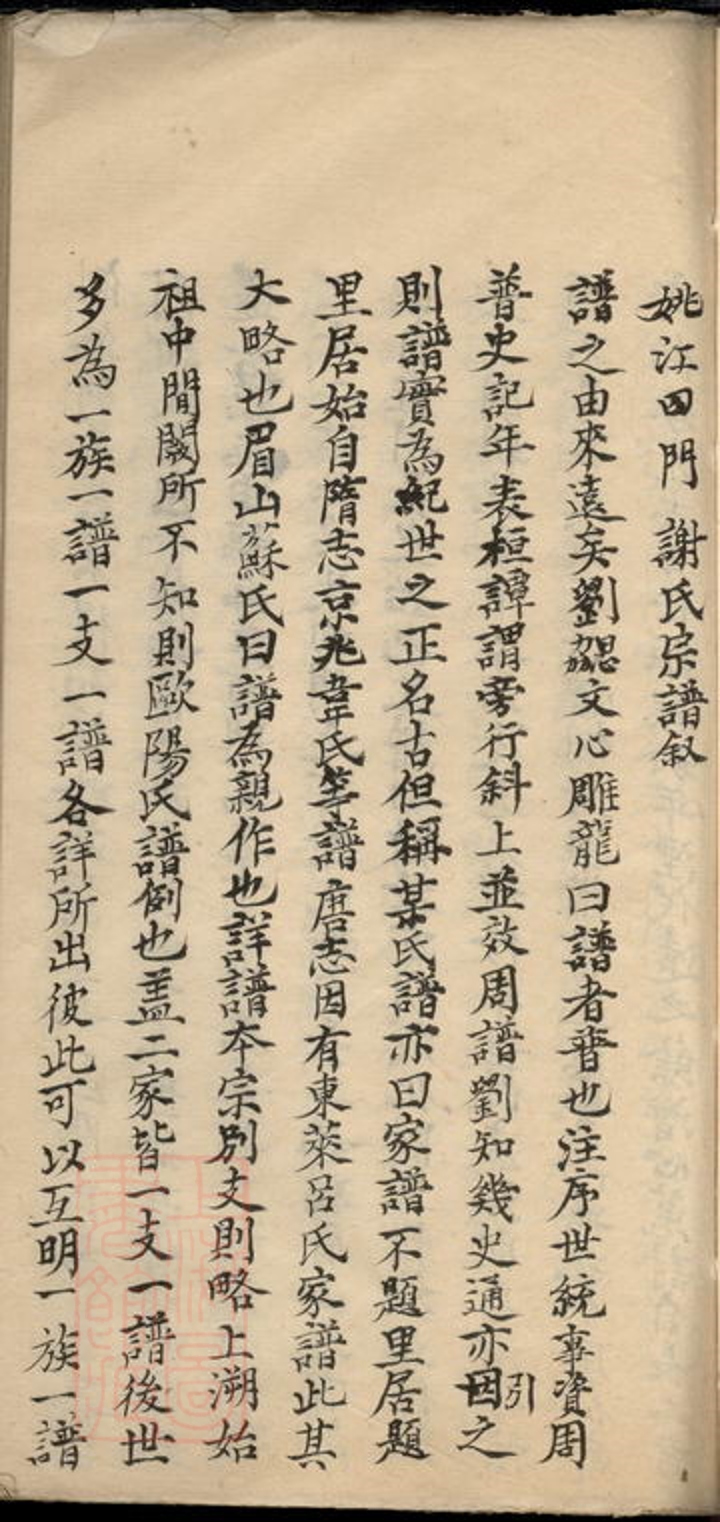 姚江四門謝氏宗譜叙
譜之由來遠矣劉勰文心雕龍曰譜者普也注序世統事資周
普史記年表桓譚謂旁行斜上並效周譜劉知幾史通亦因引之
則譜實為紀世之正名古但稱某氏譜亦曰家譜不題里居題
里居始自隋志京兆韋氏等譜唐志因有東萊呂氏家譜此其
大略也眉山蘇氏曰譜為親作也詳譜本宗別支則略上溯始
祖中間闕所不知則歐陽氏譜例也盖二家皆一支一譜後世
多為一族一譜一支一譜各詳所出彼此可以互明一族一譜